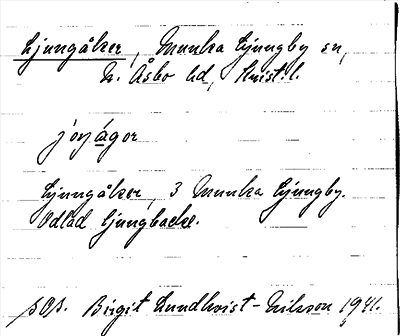 Ljungåker, Munka Ljungby sn,
N. Åsbo hd, Krist. l.
joŋågor
Ljungåker, 3 Munka Ljungby.
Odlad ljungbacke.
sOs. Birgit Lundkvist-Nilsson 1941.